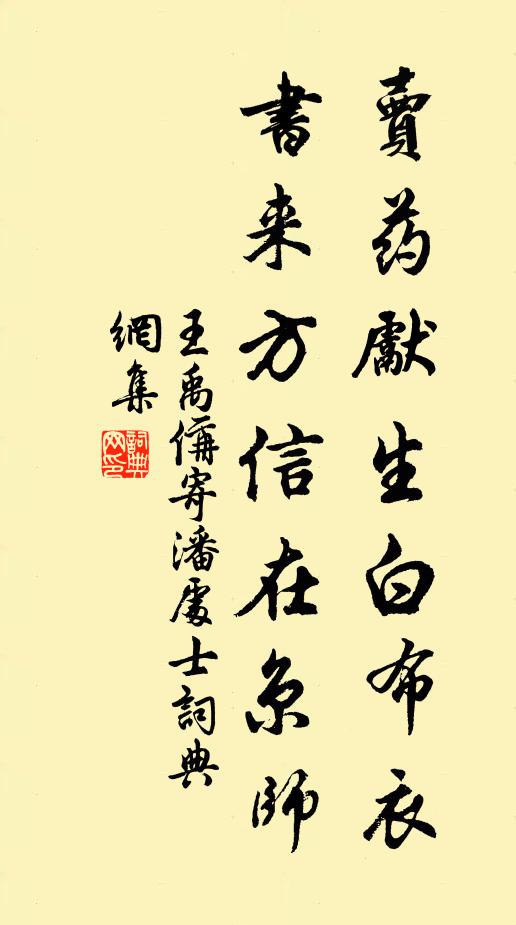 賣药獻生白布衣
書来方信在京師
王禹偁寄潘處士詞典
網集
詞典
网印